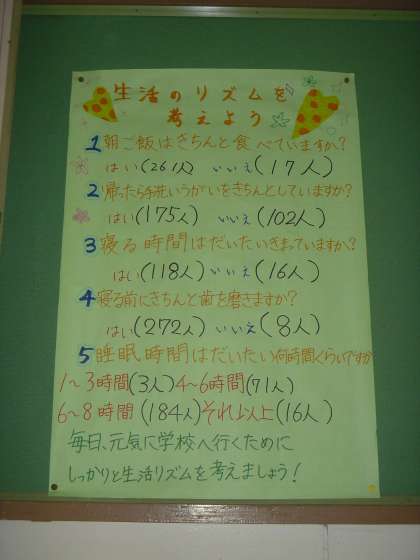 生活のリズムを
考えよう
1 朝ご飯はきちんと食べていますか?
はい(261人) いいえ(17人)
2 帰ったら手洗いうがいをきちんとしていますか?
はい(175人) いいえ(102人)
3 寝る時間はだいたいきまっていますか?
はい(118人) いいえ(16人)
4 寝る前にきちんと歯を磨きますか?
はい(272人) いいえ(8人)
5 睡眠時間はだいたい何時間くらいですか
1~3時間(3人) 4~6時間(71人)
6~8時間(184人) それ以上(16人)
毎日、元気に学校へ行くために
しっかりと生活リズムを考えましょう!